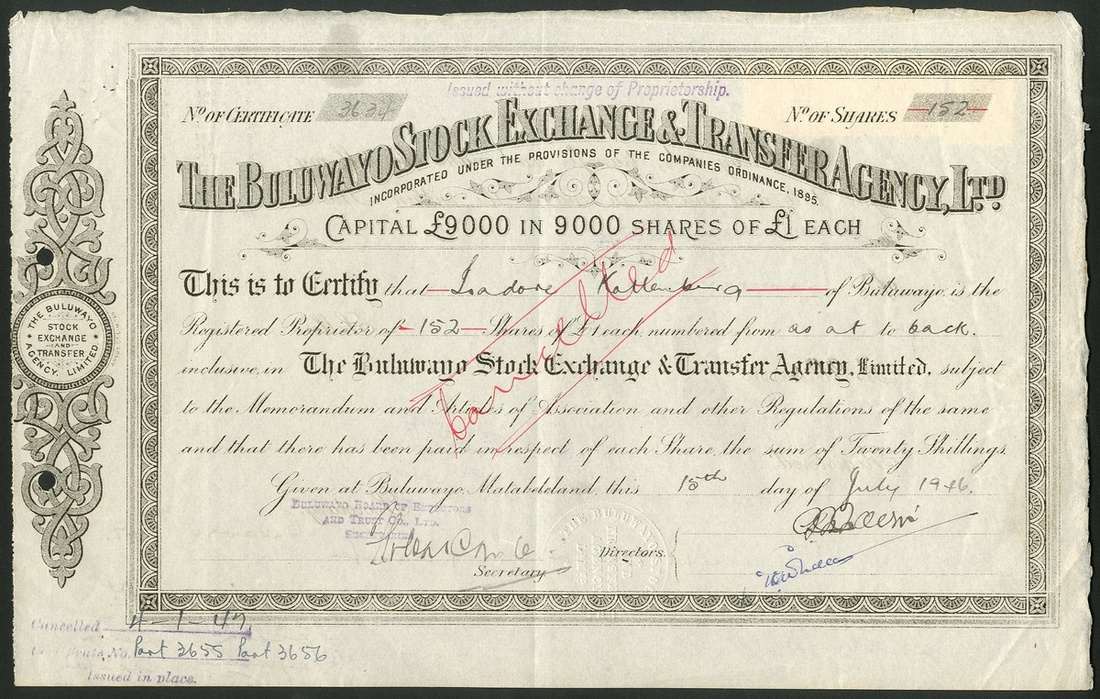 Issued without change of Proprietorship.
No. OF CERTIFICATE 3634
No. OF SHARES 152
THE BULUWAYO STOCK EXCHANGE & TRANSFER AGENCY, LTD
INCORPORATED UNDER THE PROVISIONS OF THE COMPANIES ORDINANCE, 1895.
CAPITAL £9000 IN 9000 SHARES OF £1 EACH
This is to Certify that Isadore Kottenburg of Buluwayo is the
Registered Proprietor of 152 Shares of £1 each, numbered from as at to back.
inclusive, in The Buluwayo Stock Exchange & Transfer Agency, Limited, subject
to the Memorandum and Articles of Association and other Regulations of the same
and that there has been paid in respect of each Share, the sum of Twenty Shillings.
Cancelled
Given at Buluwayo, Matabeleland, this 15th day of July 1946.
BULUWAYO BOARD OF EXECUTORS
AND TRUST CO., LTD.
SECRETARIES
Secretary
Directors.
THE BULUWAYO
STOCK
EXCHANGE
AND
TRANSFER
AGENCY, LIMITED
Cancelled 4-1-47
Certificate No. Part 3655 Part 3656
Issued in place.